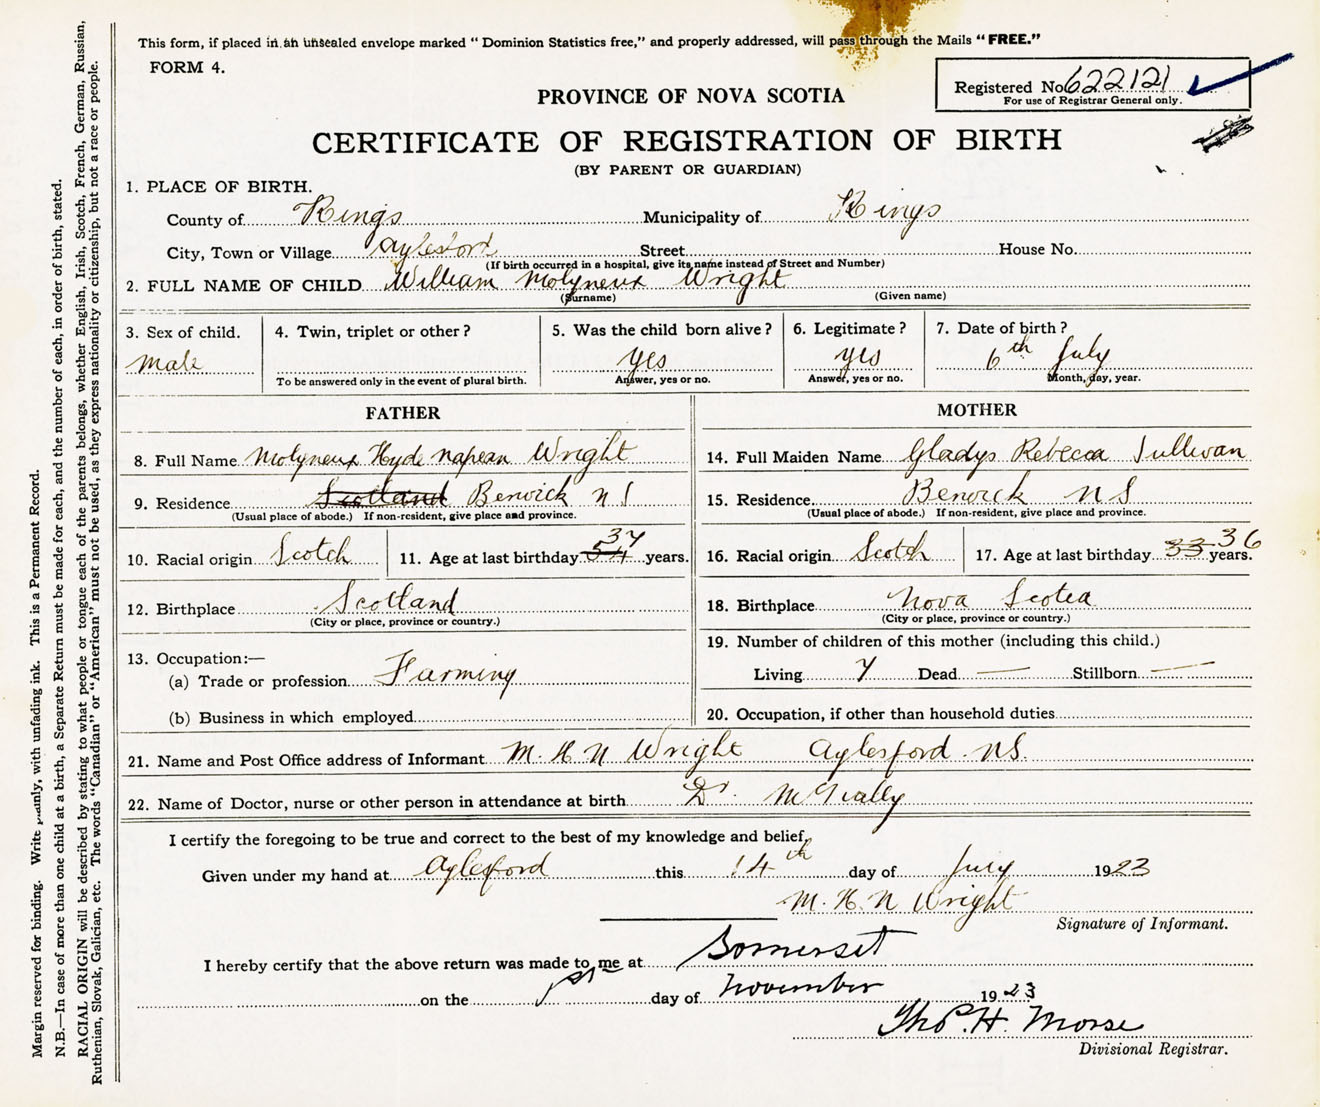 This form, if placed in an unsealed envelope marked "Dominion Statistics free," and properly addressed, will pass through the Mails "FREE."
FORM 4.
Registered No 622121
For use of Registrar General only.
PROVINCE OF NOVA SCOTIA
CERTIFICATE OF REGISTRATION OF BIRTH
(BY PARENT OR GUARDIAN)
1. PLACE OF BIRTH.
County of Kings Municipality of Kings
City, Town or Village Aylesford Street House No.
(If birth occurred in a hospital, give its name instead of Street and Number)
2. FULL NAME OF CHILD William Molyneux Wright
(Surname) (Given name)
3. Sex of child. 4. Twin, triplet or other? 5. Was the child born alive? 6. Legitimate? 7. Date of birth?
Male yes yes 6th July
To be answered only in the event of plural birth. Answer, yes or no. Answer, yes or no. Month, day, year.
FATHER
8. Full Name Molyneux Hyde Napean Wright
9. Residence Scotland Berwick N S
(Usual place of abode.) If non-resident, give place and province.
10. Racial origin Scotch 11. Age at last birthday 37 years.
12. Birthplace Scotland
(City or place, province or country.)
13. Occupation:—
(a) Trade or profession Farming
(b) Business in which employed
MOTHER
14. Full Maiden Name Gladys Rebecca Sullivan
15. Residence Berwick N S
(Usual place of abode.) If non-resident, give place and province.
16. Racial origin Scotch 17. Age at last birthday 33 36 years.
18. Birthplace Nova Scotea
(City or place, province or country.)
19. Number of children of this mother (including this child.)
Living 7 Dead — Stillborn —
20. Occupation, if other than household duties
21. Name and Post Office address of Informant M. H. N Wright Aylesford. NS.
22. Name of Doctor, nurse or other person in attendance at birth Dr.
I certify the foregoing to be true and correct to the best of my knowledge and belief,
Given under my hand at Aylesford this 14th day of July 1923
M. H. N Wright
Signature of Informant.
I hereby certify that the above return was made to me at Somerset
on the 1st day of November 1923
Tho P. H. Morse
Divisional Registrar.
Margin reserved for binding. Write plainly, with unfading ink. This is a Permanent Record.
N.B.—In case of more than one child at a birth, a Separate Return must be made for each, and the number of each, in order of birth, stated.
RACIAL ORIGIN will be described by stating to what people or tongue each of the parents belongs, whether English, Irish, Scotch, French, German, Russian,
Ruthenian, Slovak, Galician, etc. The words "Canadian" or "American" must not be used, as they express nationality or citizenship, but not a race or people.